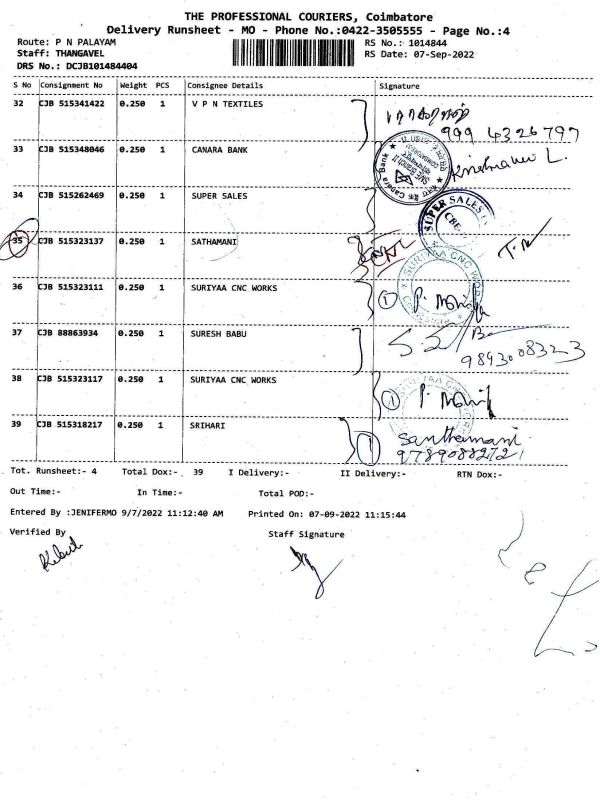 THE PROFESSIONAL COURIERS, Coimbatore
Delivery Runsheet - MO - Phone No.:0422-3505555 - Page No.:4
Route: P N PALAYAM RS No.: 1014844
Staff: THANGAVEL RS Date: 07-Sep-2022
DRS No.: DCJB101484404
S No Consignment No Weight PCS Consignee Details Signature
32 CJB 515341422 0.250 1 V P N TEXTILES
999 4326797
33 CJB 515348046 0.250 1 CANARA BANK
Canara Bank
34 CJB 515262469 0.250 1 SUPER SALES
SUPER SALES
35 CJB 515323137 0.250 1 SATHAMANI
SURIYAA CNC WORKS
36 CJB 515323111 0.250 1 SURIYAA CNC WORKS
1 P.
37 CJB 88863934 0.250 1 SURESH BABU
9893008323
38 CJB 515323117 0.250 1 SURIYAA CNC WORKS
SURIYAA CNC WORKS
1 P.
39 CJB 515318217 0.250 1 SRIHARI
1 Santhamani
Tot. Runsheet:- 4 Total Dox:- 39 I Delivery:- II Delivery:- RTN Dox:-
Out Time:- In Time:- Total POD:-
Entered By :JENIFERMO 9/7/2022 11:12:40 AM Printed On: 07-09-2022 11:15:44
Verified By Staff Signature